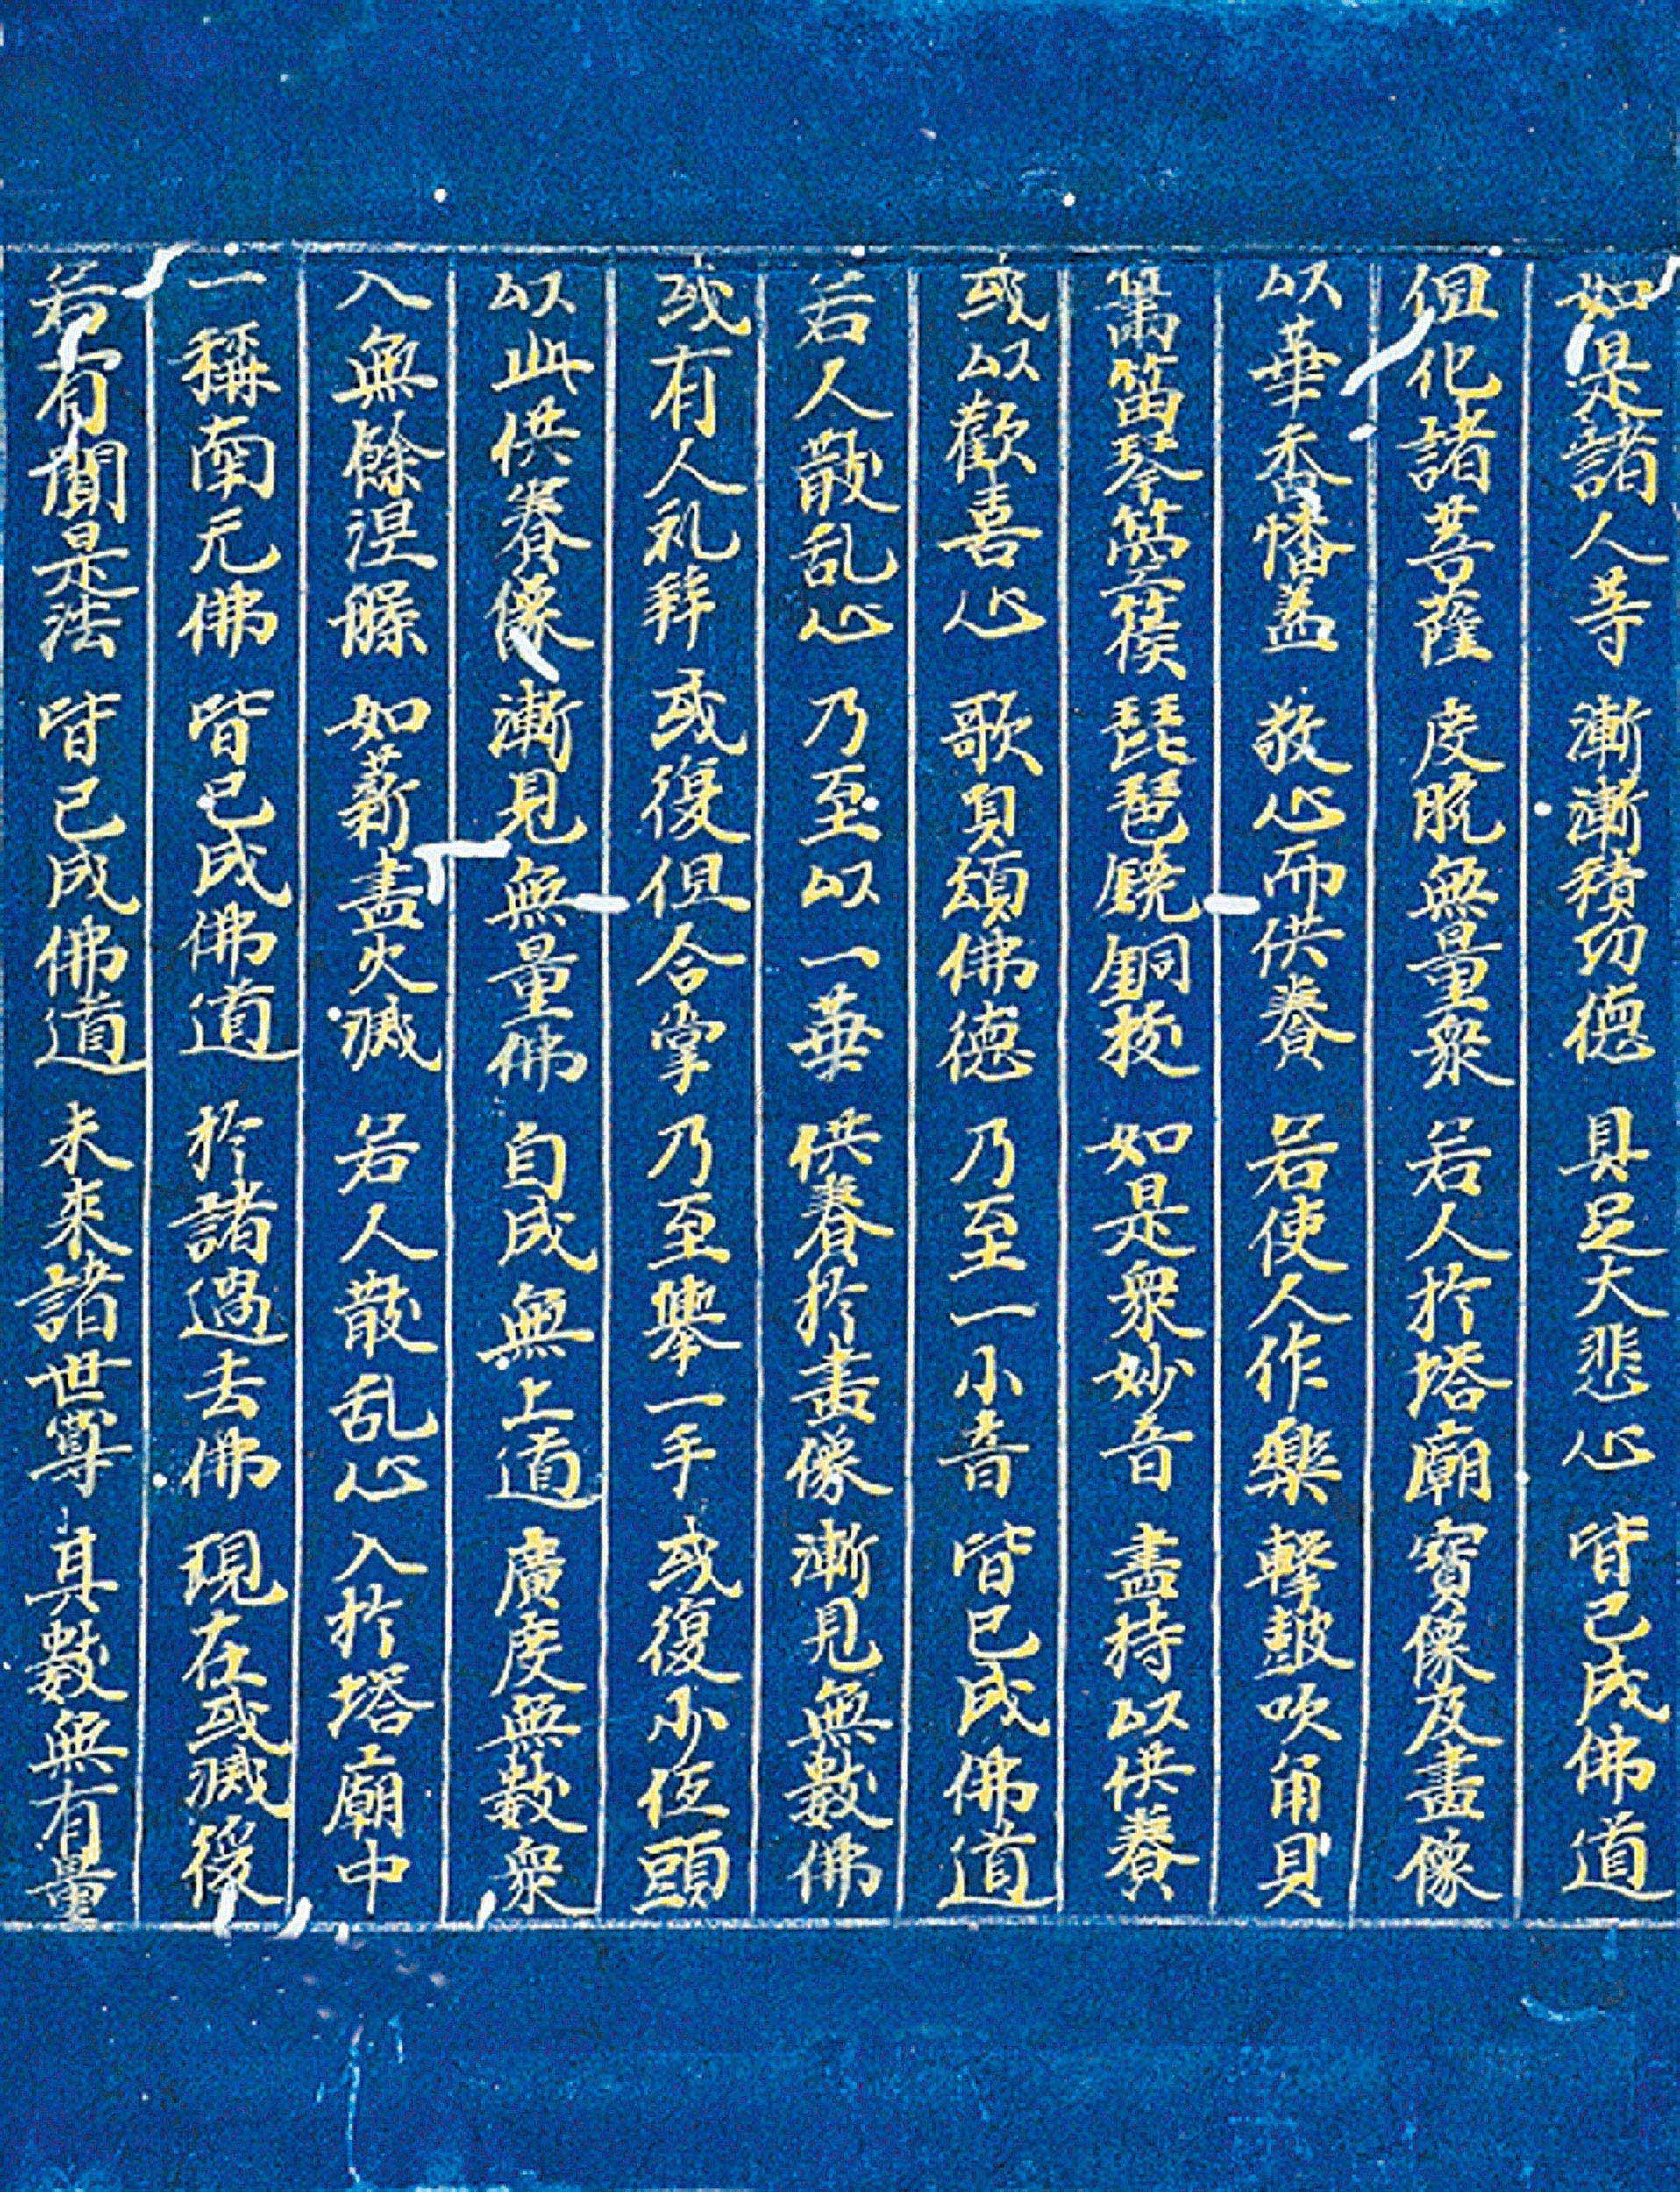 如是諸人等 漸漸積功德 具足大悲心 皆已成佛道
但化諸菩薩 度脫無量衆 若人於塔廟 寳像及畫像
以華香幡盖 敬心而供養 若使人作樂 擊鼓吹角貝
簫笛琴箜篌 琵琶鐃銅鈸 如是衆妙音 盡持以供養
或以歡喜心 歌唄頌佛德 乃至一小音 皆已成佛道
若人散乱心 乃至以一華 供養於畫像 漸見無數佛
或有人礼拜 或復但合掌 乃至舉一手 或復小低頭
以此供養像 漸見無量佛 自成無上道 廣度無數衆
入無餘涅槃 如薪盡火滅 若人散乱心 入於塔廟中
一稱南无佛 皆已成佛道 於諸過去佛 現在或滅後
若有聞是法 皆已成佛道 未來諸世尊 其數無有量